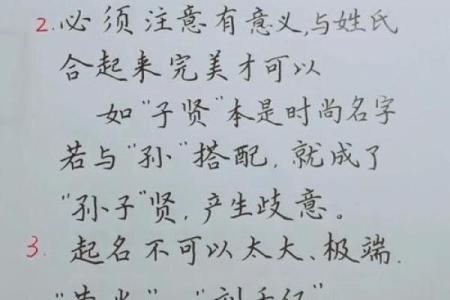 2.必须注意有意义,与姓氏
合起来完美才可以
如"子贤"本是时尚名字
若与"孙"搭配,就成了
"孙子"贤,产生歧意。
3.起名不可以太大、极端.